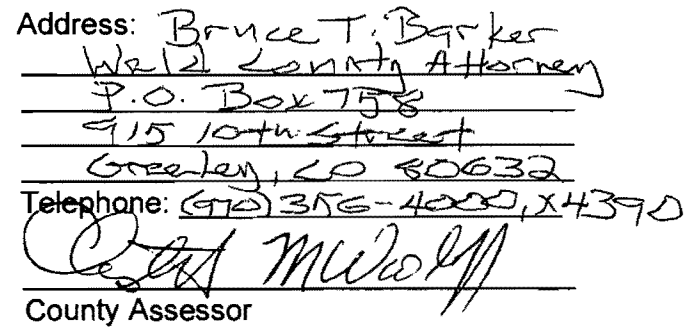 Address: Bruce T. Barker
Weld County Attorney
P.O. Box 758
915 10th Street
Greeley, CO 80632
Telephone: (970) 356-4000, X4390
County Assessor